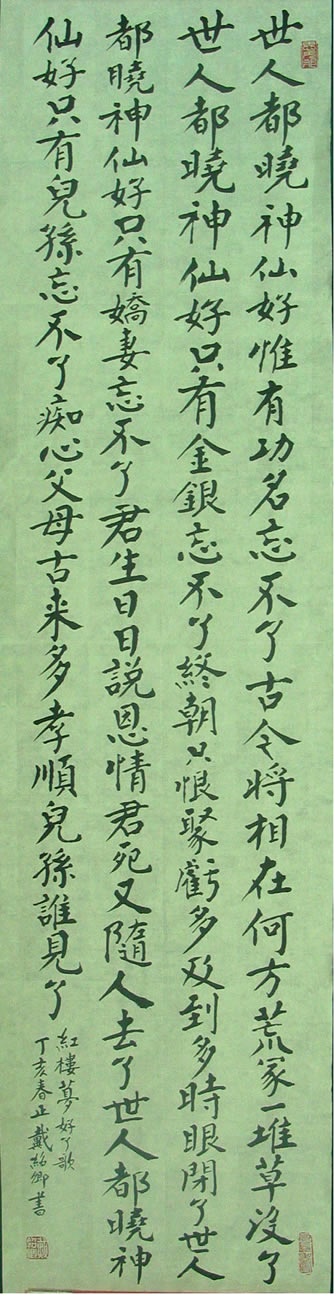 世人都曉神仙好惟有功名忘不了古今将相在何方荒冢一堆草没了
世人都曉神仙好只有金銀忘不了終朝只恨聚虧多及到多時眼閉了世人
都曉神仙好只有嬌妻忘不了君生日日說恩情君死又隨人去了世人都曉神
仙好只有兒孫忘不了痴心父母古来多孝順兒孫誰見了
紅樓夢好了歌
丁亥春正戴紹卿書